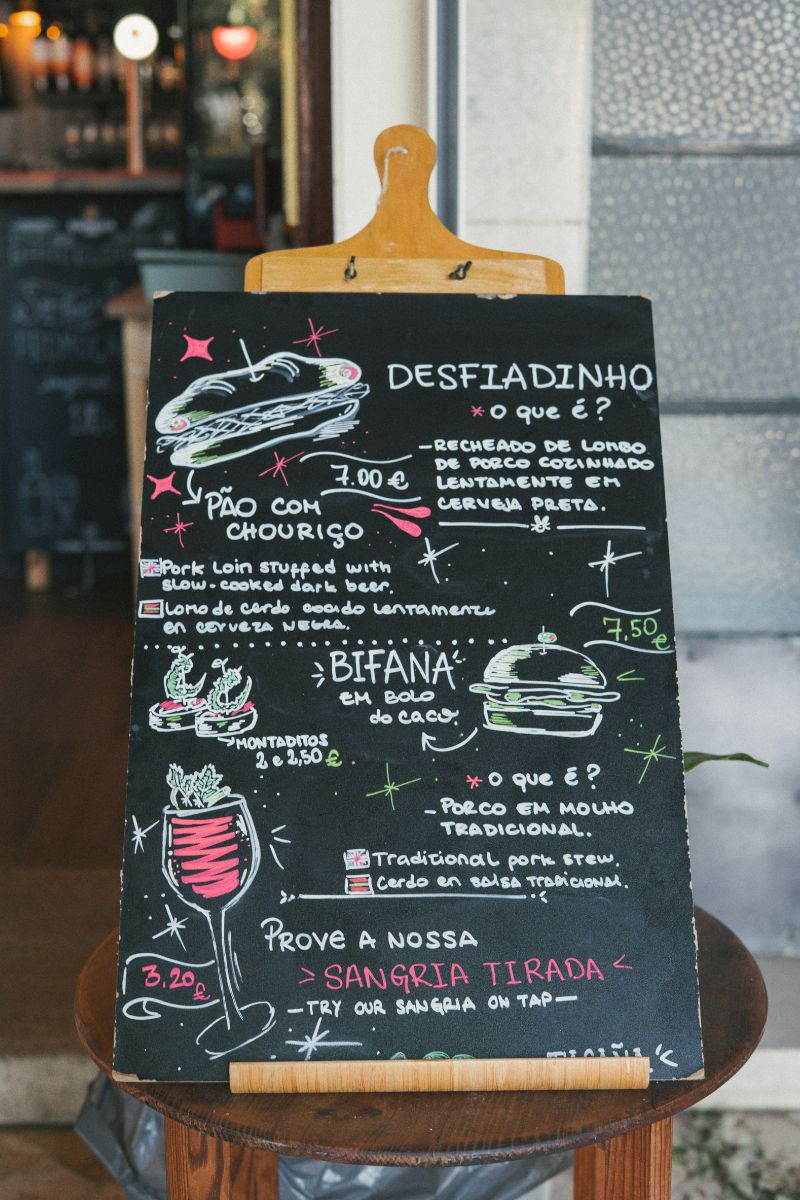 DESFIADINHO
* O que é?
- RECHEADO DE LOMBO
DE PORCO COZINHADO
LENTAMENTE EM
CERVEJA PRETA.
7.00 €
PÃO COM
CHOURIÇO
Pork loin stuffed with
slow-cooked dark beer.
Lomo de cerdo cocido lentamente
en cerveza NEGRA.
7,50 €
BIFANA
EM BOLO
do caco.
MONTADITOS
2 e 2,50 €
* O que é?
- PORCO EM MOLHO
TRADICIONAL.
Traditional pork stew.
Cerdo en salsa TRADICIONAL.
PROVE A NOSSA
> SANGRIA TIRADA <
- TRY OUR SANGRIA ON TAP -
3.20 €